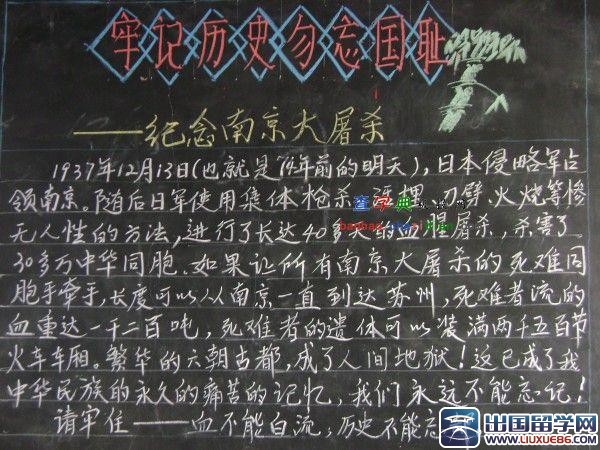 牢记历史勿忘国耻
——纪念南京大屠杀
1937年12月13日(也就是74年前的明天),日本侵略军占
领南京.随后日军使用集体枪杀、活埋、刀劈、火烧等惨
无人性的方法,进行了长达40多天的血腥屠杀,杀害了
30多万中华同胞.如果让所有南京大屠杀的死难同
胞手牵手,长度可以从南京一直到达苏州,死难者流的
血重达一千二百吨,死难者的遗体可以装满两千五百节
火车车厢。繁华的六朝古都,成了人间地狱!这已成了我
中华民族的永久的痛苦的记忆,我们永远不能忘记!
请牢住——血不能白流,历史不能忘
查字典
出国留学网
www.liuxue86.com